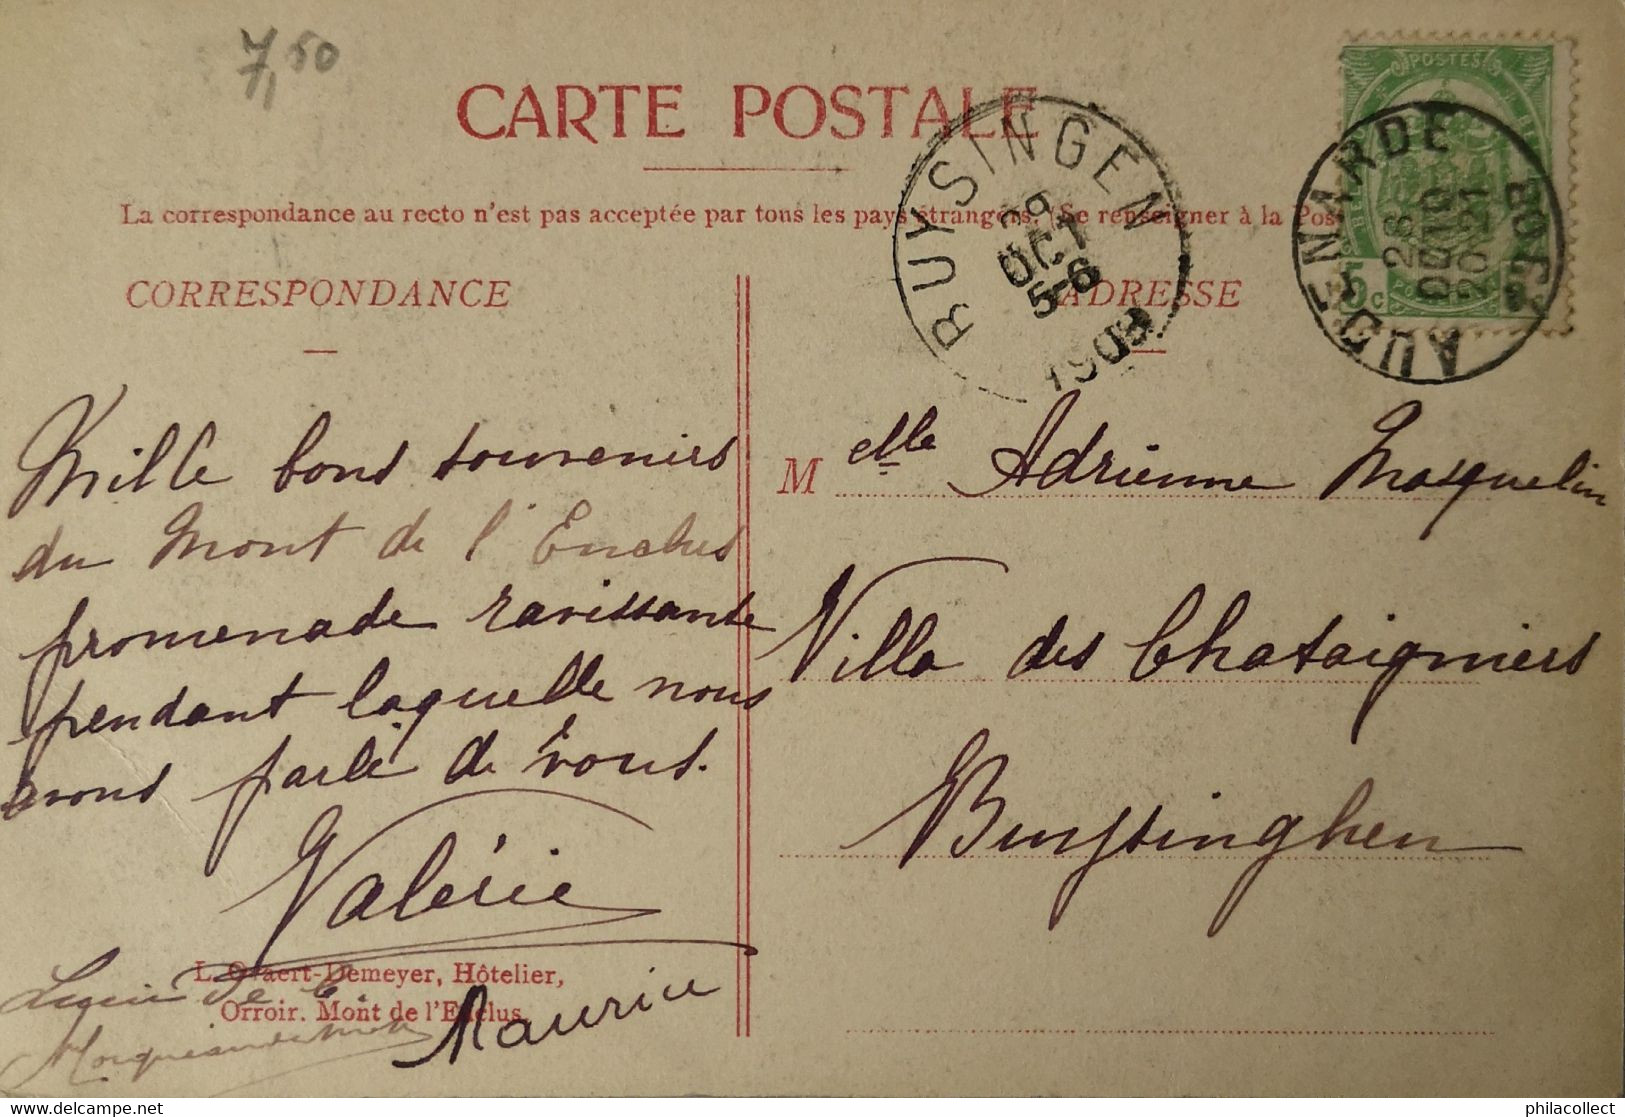 7,50
CARTE POSTALE
La correspondance au recto n'est pas acceptée par tous les pays étrangers. (Se renseigner à la Pos
POSTES
5c
RUYSINGEN
29
OCT
5-6
AUDENARDE
CORRESPONDANCE
ADRESSE
Mille bons souvenirs
du Mont de l'Enclus
promenade ravissante
pendant laquelle nous
avons parlé de vous.
Valérie
Maurice
L. Ovaert-Demeyer, Hôtelier,
Orroir. Mont de l'Enclus
Melle Adrienne Masquelin
Villa des Chataigniers
Buysinghen
philacollect